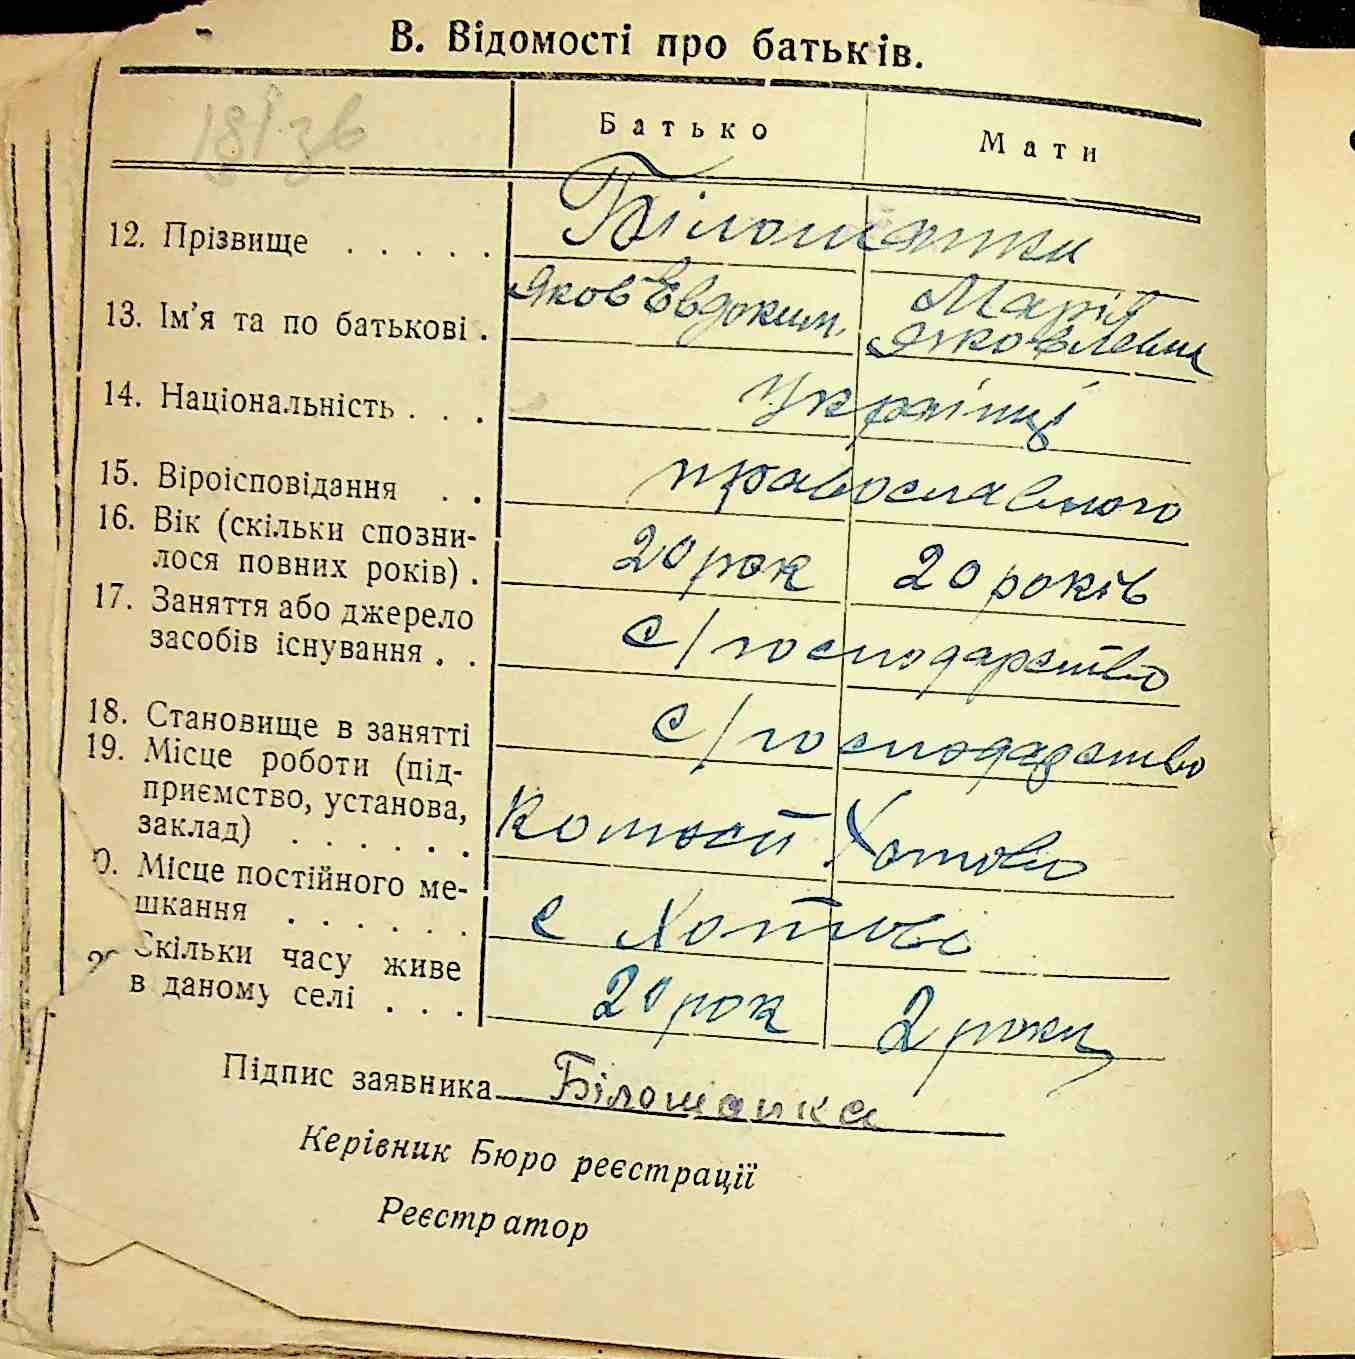 В. Відомості про батьків.
Батько Мати
12. Прізвище . . . . . Білошапки
13. Ім'я та по батькові . Яков Евдоким. Марія
Яковлевна
14. Національність . . . Українці
15. Віроісповідання . . православного
16. Вік (скільки спозни-
лося повних років) . 20 рок 20 років
17. Заняття або джерело
засобів існування . . с/господарство
18. Становище в занятті с/господарство
19. Місце роботи (під-
приємство, установа,
заклад) . . . . . . Хотово
0. Місце постійного ме-
шкання . . . . . . с Хотові
Скільки часу живе
в даному селі . . . 20 рок 2 роки
Підпис заявника Білошапка
Керівник Бюро реєстрації
Реєстратор